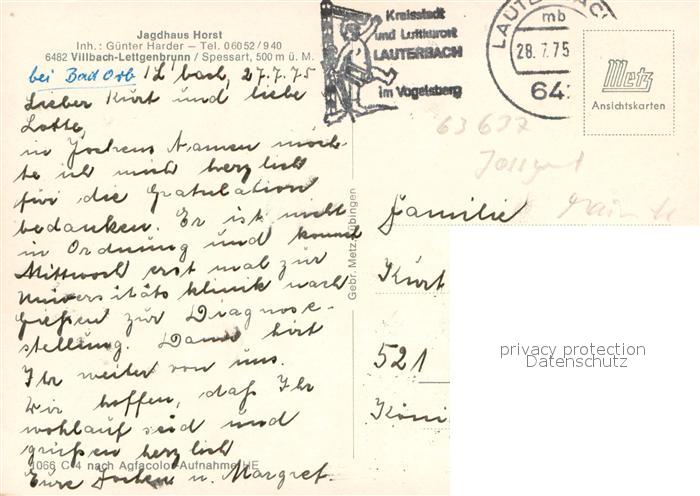 Jagdhaus Horst
Inh.: Günter Harder – Tel. 06052/940
6482 Villbach-Lettgenbrunn / Spessart, 500 m ü. M.
bei Bad Orb / L'bach, 27.7.75
Lieber Kurt und liebe
Lotte,
in Jochens Namen möch-
te ich mich herzlich
für die Gratulation
bedanken. Er ist nicht
in Ordnung und kommt
Mittwoch erst mal zur
Universitätsklinik nach
Gießen zur Diagnose-
stellung. Dann hört
Ihr weiter von uns.
Wir hoffen, daß Ihr
wohlauf seid und
grüßen herzlich
1066 C 4 nach Agfacolor-Aufnahme HE
Eure Jochen u. Margret.
Gebr. Metz, Tübingen
Kreisstadt
und Luftkurort
LAUTERBACH
im Vogelsberg
LAUTERBACH
mb
28.7.75
64
Metz
Ansichtskarten
63637
Familie
Kurt
521
Köni
privacy protection
Datenschutz